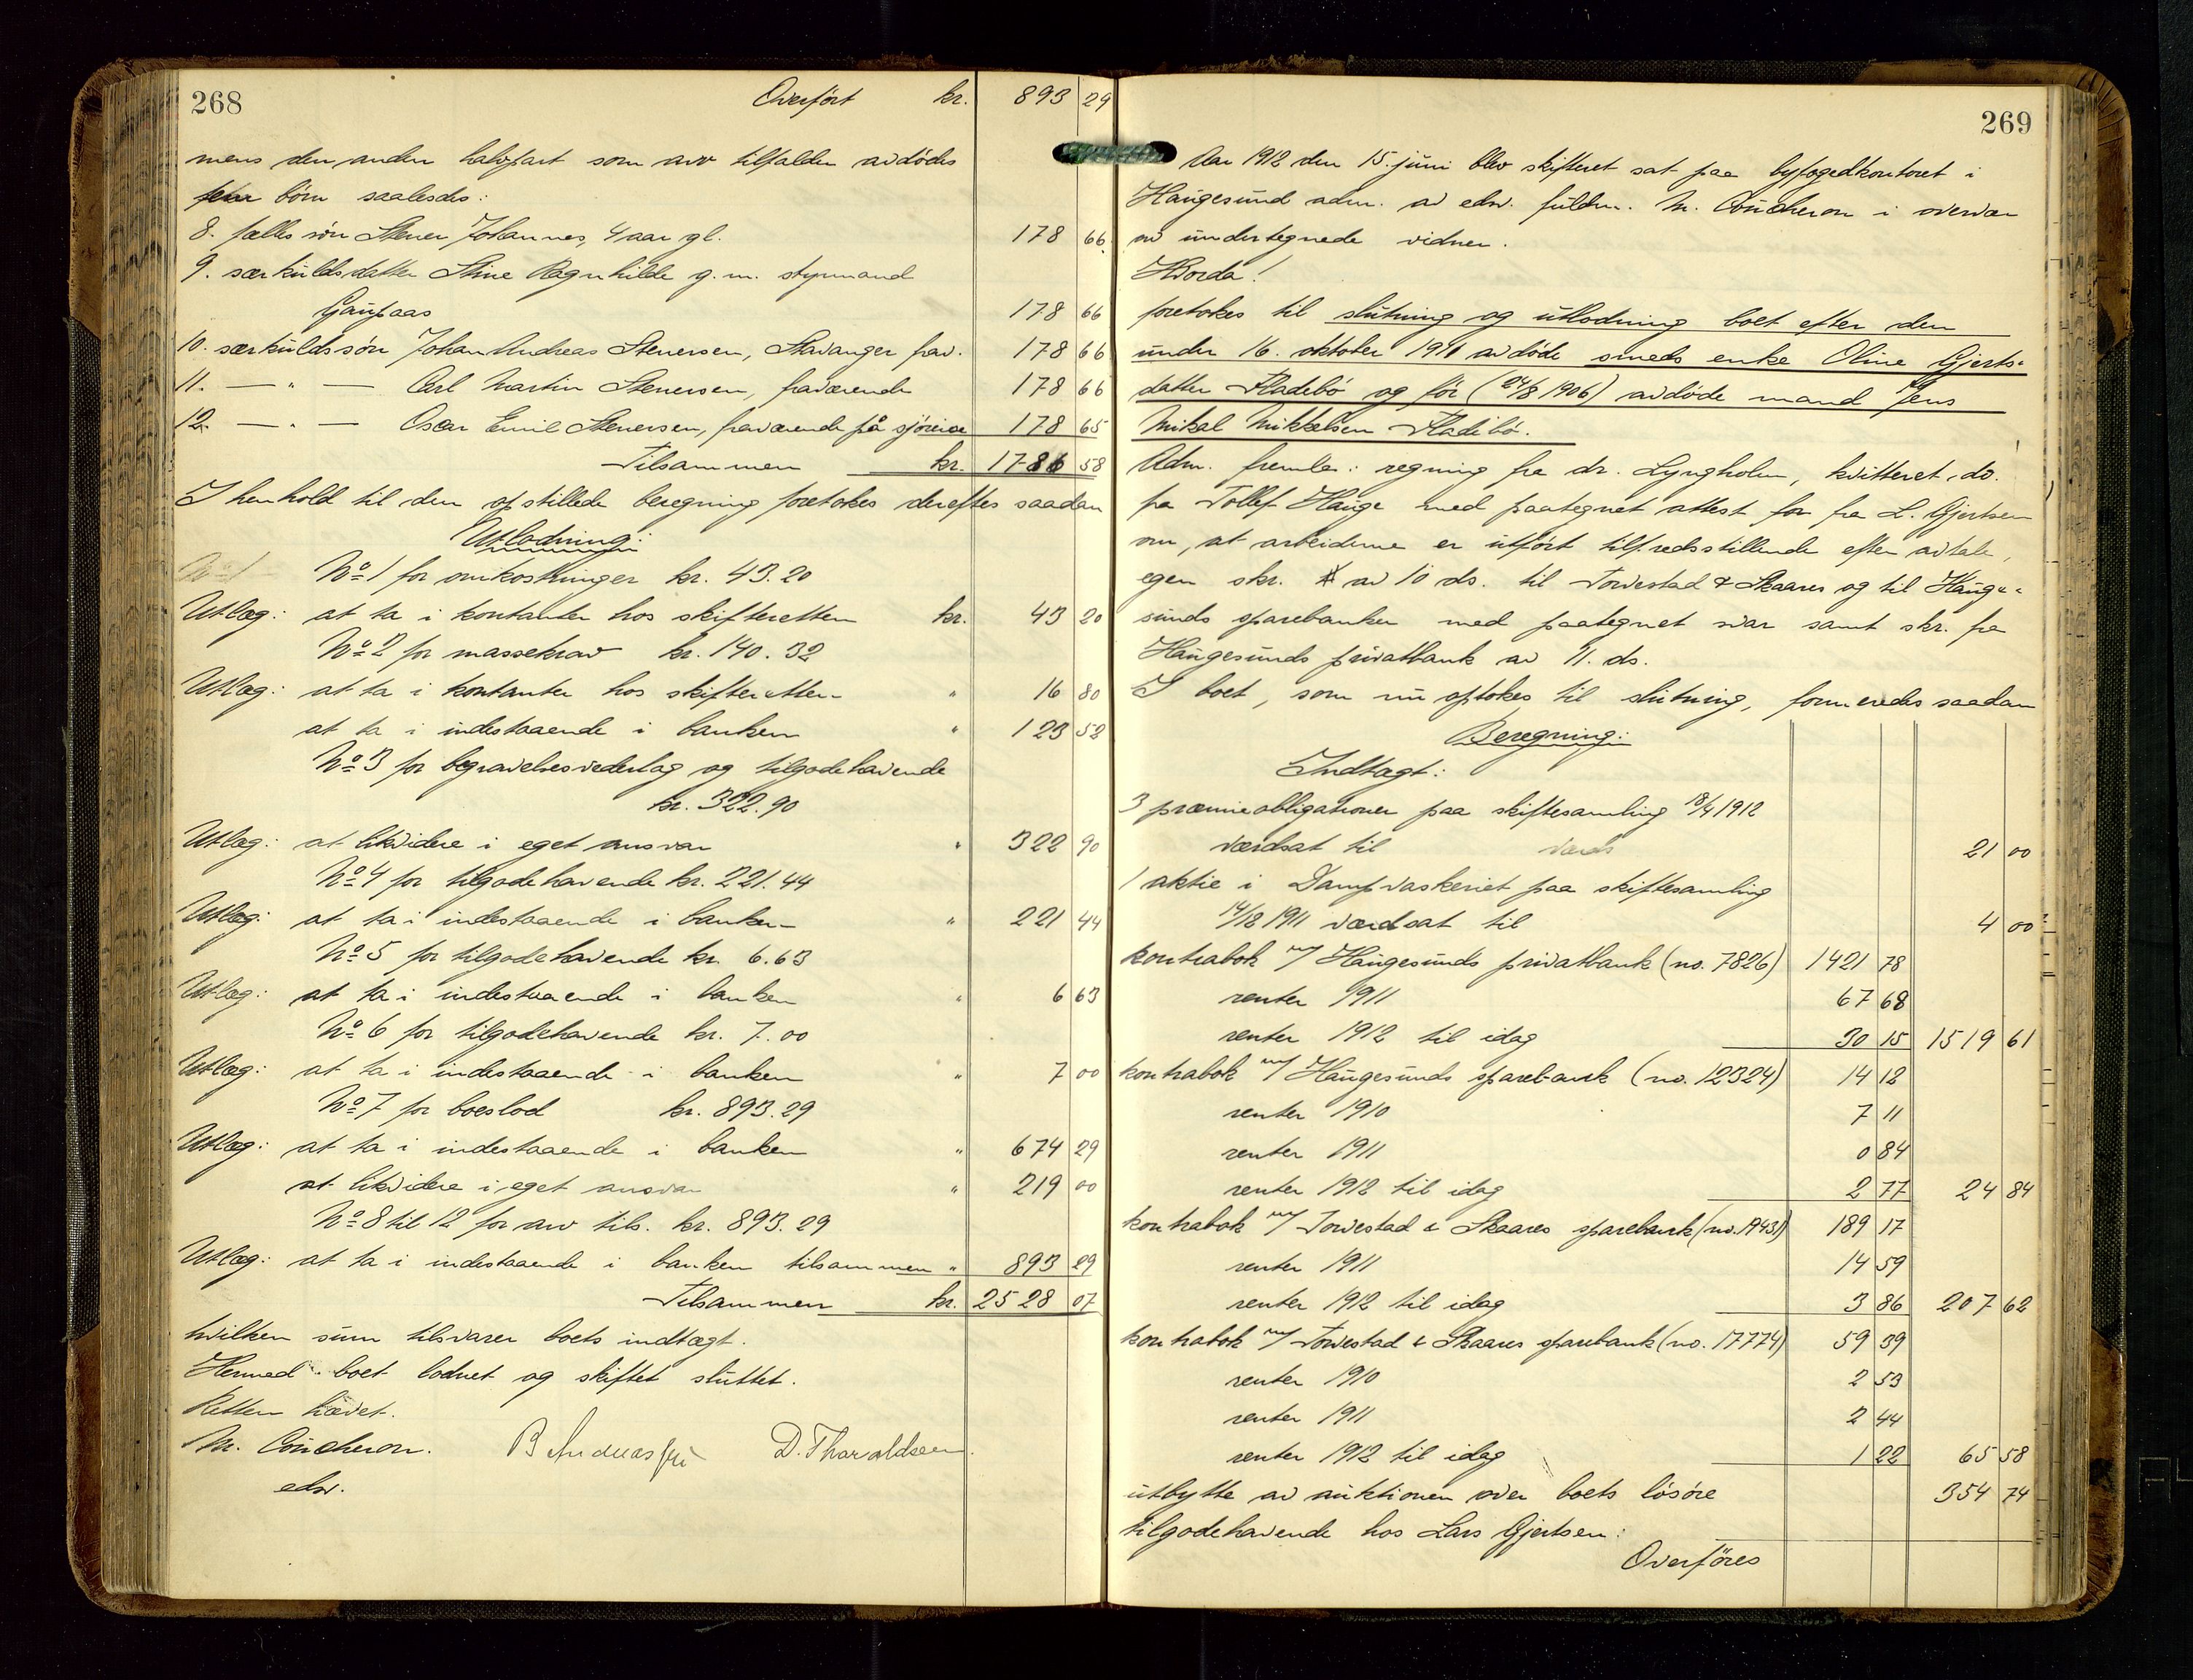 268
Overført kr. 893 29
mens den anden halvpart som arv tilfalder avdødes
fem børn saaledes:
8. fælles søn Stener Johannes, 4 aar gl. 178 66
9. særkuldsdatter Stine Ragnhilde g. m. styrmand
Gaupaas 178 66
10. særkuldssøn Johan Andreas Stenersen, Stavanger frav. 178 66
11. — " — Carl Martin Stenersen, fraværende 178 66
12. — " — Oscar Emil Stenersen, fraværende på sjöreise 178 65
Tilsammen kr. 1786 58
I henhold til den opstillede beregning foretokes derefter saadan
Utlodning:
No 1 No 1 for omkostninger kr. 43.20
Utlæg: at ta i kontanter hos skifteretten kr. 43 20
No 2 for massekrav kr. 140.32
Utlæg: at ta i kontanter hos skifteretten " 16 80
at ta i indestaaende i banken " 123 52
No 3 for begravelsesvederlag og tilgodehavende
kr. 322.90
Utlæg: at likvidere i eget ansvar " 322 90
No 4 for tilgodehavende kr. 221.44
Utlæg: at ta i indestaaende i banken " 221 44
No 5 for tilgodehavende kr. 6.63
Utlæg: at ta i indestaaende i banken " 6 63
No 6 for tilgodehavende kr. 7.00
Utlæg: at ta i indestaaende i banken " 7 00
No 7 for boeslod kr. 893.29
Utlæg: at ta i indestaaende i banken " 674 29
at likvidere i eget ansvar " 219 00
No 8 til 12 for arv tils. kr. 893.29
Utlæg: at ta i indestaaende i banken tilsammen " 893 29
Tilsammen kr. 2528 07
hvilken sum tilsvarer boets indtægt.
Hermed boet lodnet og skiftet sluttet.
Retten hævet.
M. Coucheron. B Andreassen D. Tharaldsen
edsv.
269
Aar 1912 den 15. juni blev skifteret sat paa byfogedkontoret i
Haugesund adm. av edsv. fuldm. M. Coucheron i overvær
av undertegnede vidner.
Hvorda!
foretokes til slutning og utlodning boet efter den
under 16. oktober 1911 avdøde smeds enke Oline Gjerts-
datter Fladebö og før (24/8 1906) avdöde mand Jens
Mikal Mikkelsen Fladebö.
Adm. fremla: regning fra dr. Lyngholm, kvitteret, do.
fra Tollef Hauge med paategnet attest for fra L. Gjertsen
om, at arbeiderne er utfört tilfredsstillende efter avtale,
egen skr. av 10 ds. til Torvestad & Skaares og til Hauge-
sunds sparebanker med paategnet svar samt skr. fra
Haugesunds privatbank av 11. ds.
I boet, som nu optokes til slutning, formeredes saadan
Beregning:
Indtægt:
3 præmieobligationer paa skiftesamling 18/4 1912
værdsat til 21 00
1 aktie i Dampvaskeriet paa skiftesamling
14/12 1911 værdsat til 4 00
kontrabok m/ Haugesunds privatbank (no. 7826) 1421 78
renter 1911 67 68
renter 1912 til idag 30 15 1519 61
kontrabok m/ Haugesunds sparebank (no. 12324) 14 12
renter 1910 7 11
renter 1911 0 84
renter 1912 til idag 2 77 24 84
kontrabok m/ Torvestad & Skaares sparebank (no. 19431) 189 17
renter 1911 14 59
renter 1912 til idag 3 86 207 62
kontrabok m/ Torvestad & Skaares sparebank (no. 17774) 59 39
renter 1910 2 53
renter 1911 2 44
renter 1912 til idag 1 22 65 58
utbytte av auktionen over boets lösöre 354 74
tilgodehavende hos Lars Gjertsen:
Overföres